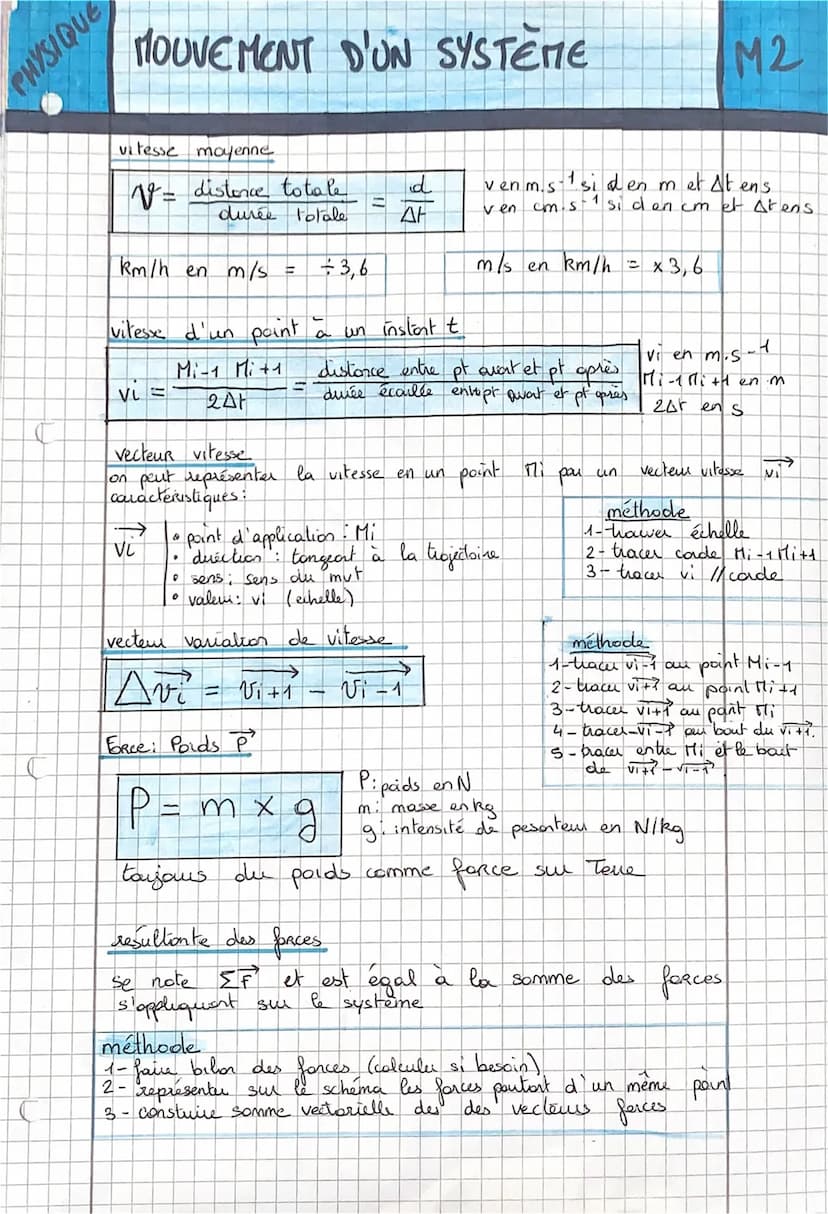 PHYSIQUE
MOUVEMENT D'UN SYSTÈME
M2
vitesse moyenne
V = distance totale / durée totale = d / Δt
v en m.s⁻¹ si d en m et Δt en s
v en cm.s⁻¹ si d en cm et Δt en s
km/h en m/s = ÷3,6
m/s en km/h = x3,6
vitesse d'un point à un instant t
vi = Mi-1 Mi+1 / 2Δt = distance entre pt avant et pt après / durée écoulée entre pt avant et pt après
vi en m.s-1
Mi-1 Mi+1 en m
2Δt en s
vecteur vitesse
on peut représenter la vitesse en un point Mi par un vecteur vitesse vi→
caractéristiques :
vi→
• point d'application : Mi
• direction : tangeant à la trajectoire
• sens : sens du mvt
• valeur : vi (echelle)
méthode
1- trouver échelle
2- tracer corde Mi-1Mi+1
3- tracer vi // corde
vecteur variation de vitesse
Δvi→ = vi+1→ - vi-1→
méthode
1- tracer vi-1→ au point Mi-1
2- tracer vi+1→ au point Mi+1
3- tracer vi+1→ au point Mi
4- tracer -vi-1→ au bout du vi+1→.
5- tracer entre Mi et le bout
de vi+1→ - vi-1→
Force : Poids P→
P = m x g
P : poids en N
m : masse en kg
g : intensité de pesanteur en N/kg
toujours du poids comme force sur Terre
resultante des forces
se note ΣF→ et est égal à la somme des forces
s'appliquant sur le système
méthode
1- faire bilan des forces (calculer si besoin)
2- représenter sur le schéma les forces partant d'un même point
3- construire somme vectorielle des des vecteurs forces